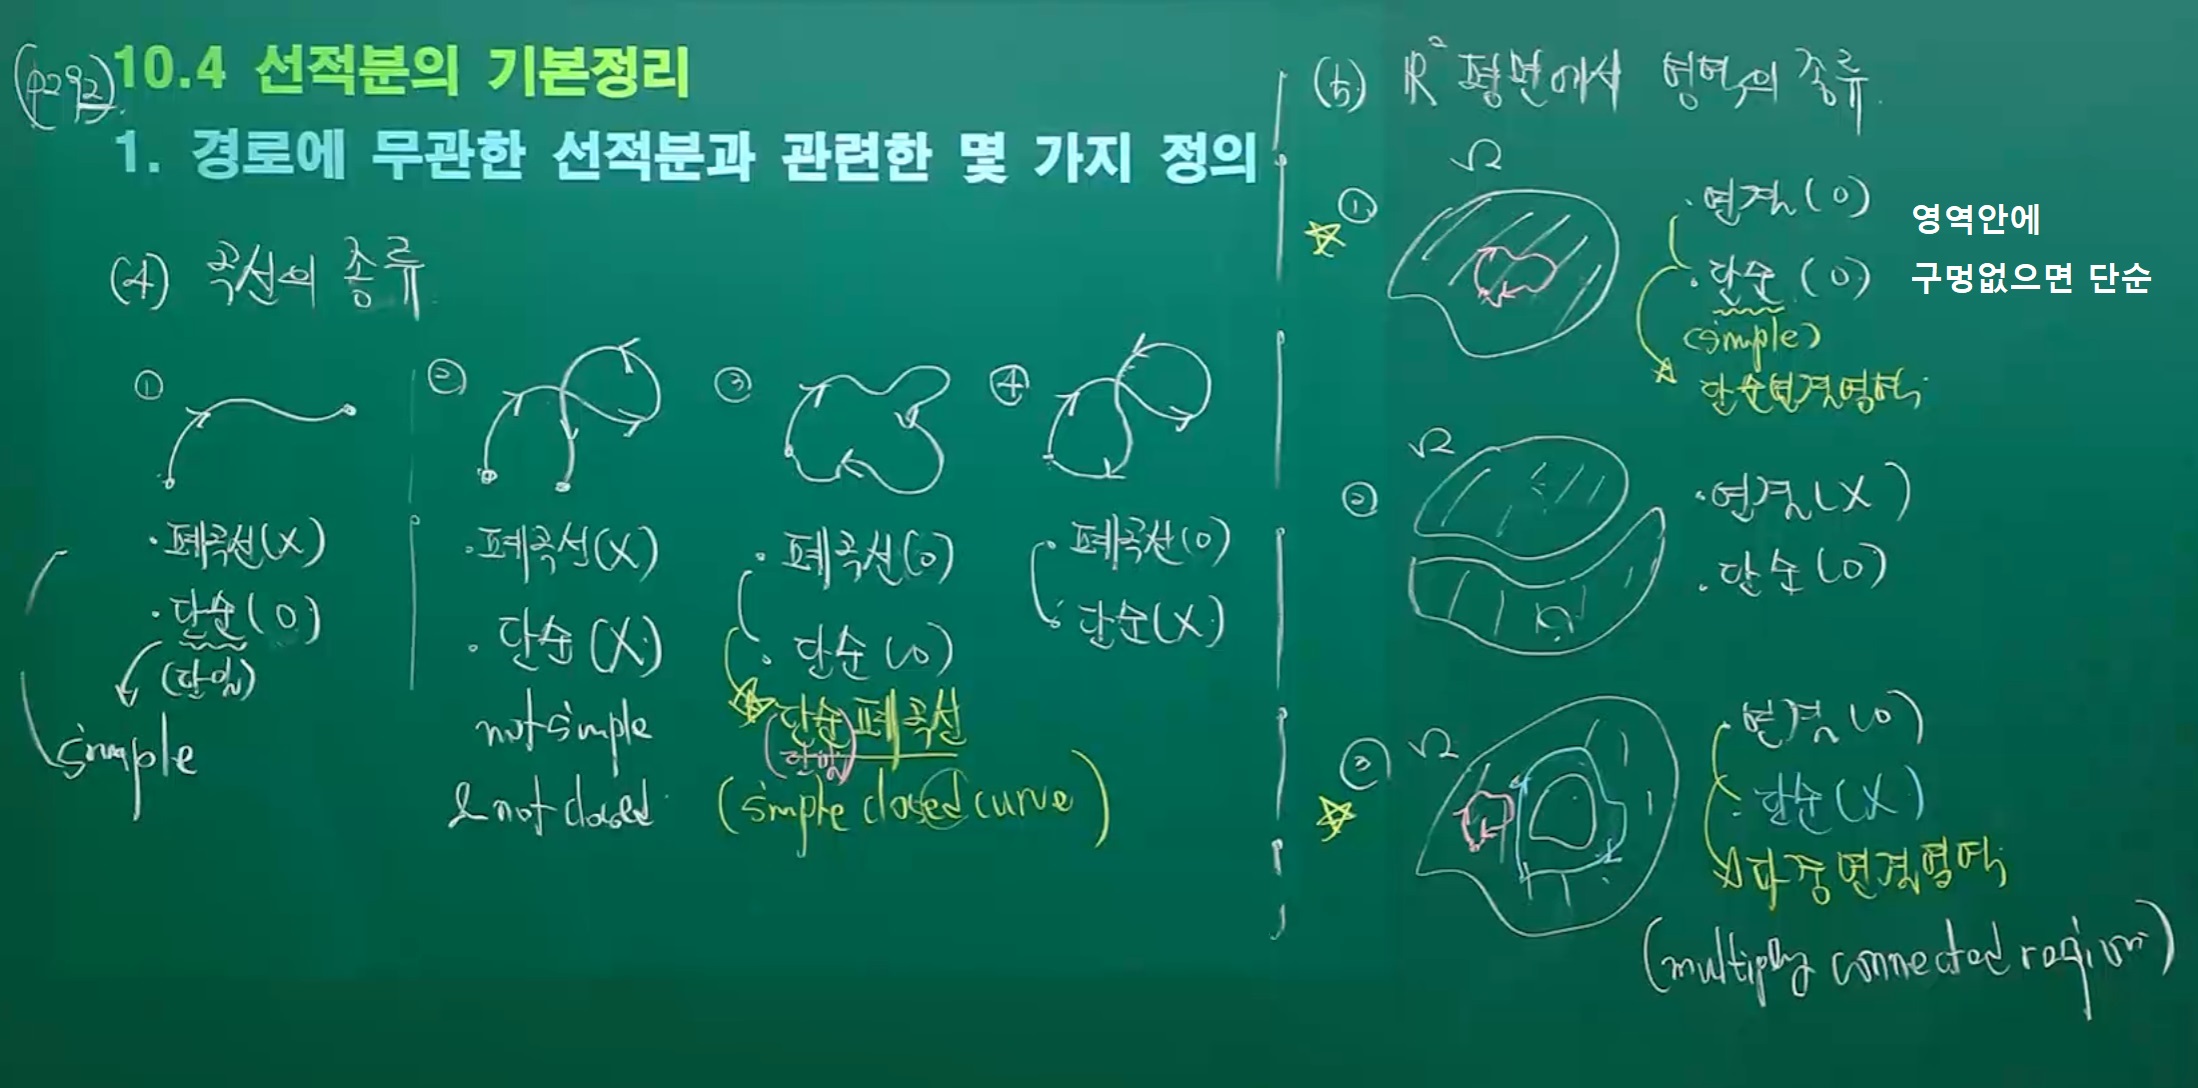 (p292)
10.4 선적분의 기본정리
1. 경로에 무관한 선적분과 관련한 몇 가지 정의
(4) 곡선의 종류
①
· 폐곡선(X)
· 단순(O)
(단일)
simple
②
· 폐곡선(X)
· 단순(X)
not simple
& not closed
③
· 폐곡선(O)
· 단순(O)
☆ 단순폐곡선
(단일)
(simple closed curve)
④
· 폐곡선(O)
· 단순(X)
(5) R² 평면에서 영역의 종류
☆ ① Ω
· 연결(O)
· 단순(O)
영역안에
구멍없으면 단순
(simple)
☆ 단순연결영역
② Ω
· 연결(X)
· 단순(O)
☆ ③ Ω
· 연결(O)
· 단순(X)
☆ 다중연결영역
(multiply connected region)